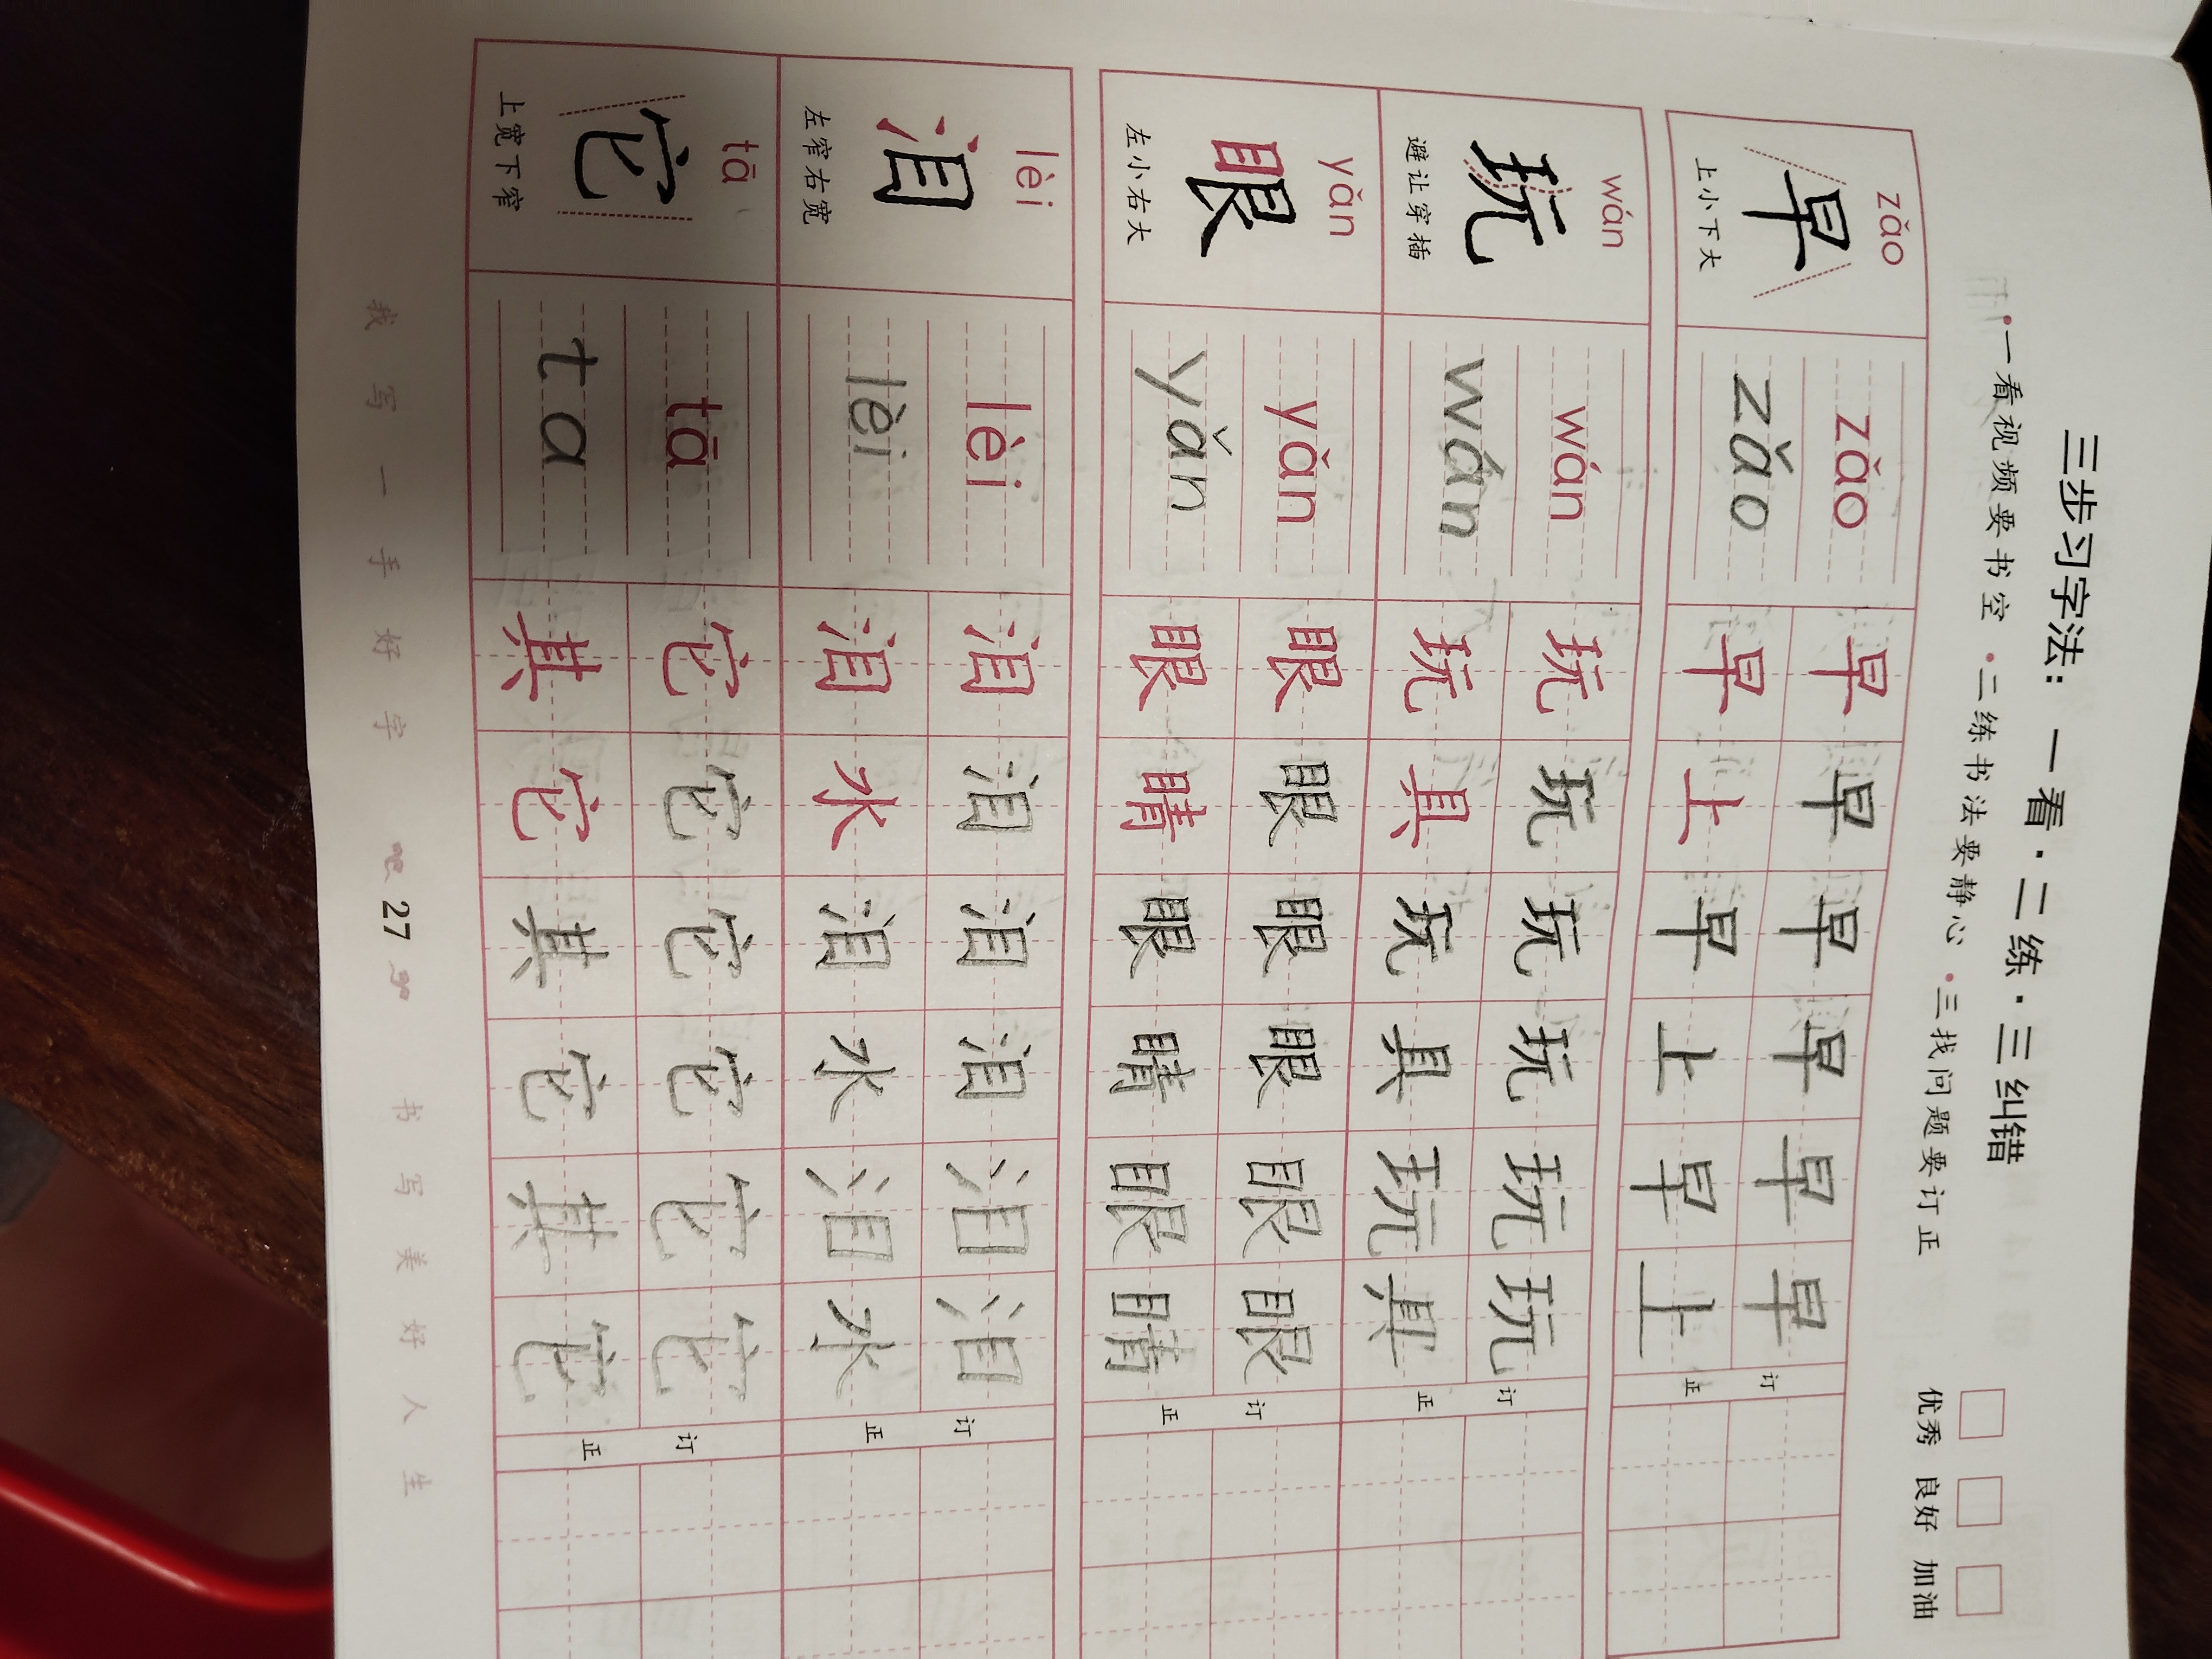 三步习字法：一看·二练·三纠错
•一看视频要书空 •二练书法要静心 •三找问题要订正
优秀 良好 加油
zǎo
早
上小下大
zǎo 早 早 早 早 早 早 订
zǎo 早 上 早 上 早 上 正
wán
玩
避让穿插
wán 玩 玩 玩 玩 玩 玩 订
wán 玩 具 玩 具 玩 具 正
yǎn
眼
左小右大
yǎn 眼 眼 眼 眼 眼 眼 订
yǎn 眼 睛 眼 睛 眼 睛 正
lèi
泪
左窄右宽
lèi 泪 泪 泪 泪 泪 泪 订
lèi 泪 水 泪 水 泪 水 正
tā
它
上宽下窄
tā 它 它 它 它 它 它 订
ta 其 它 其 它 其 它 正
我写一手好字 27 书写美好人生